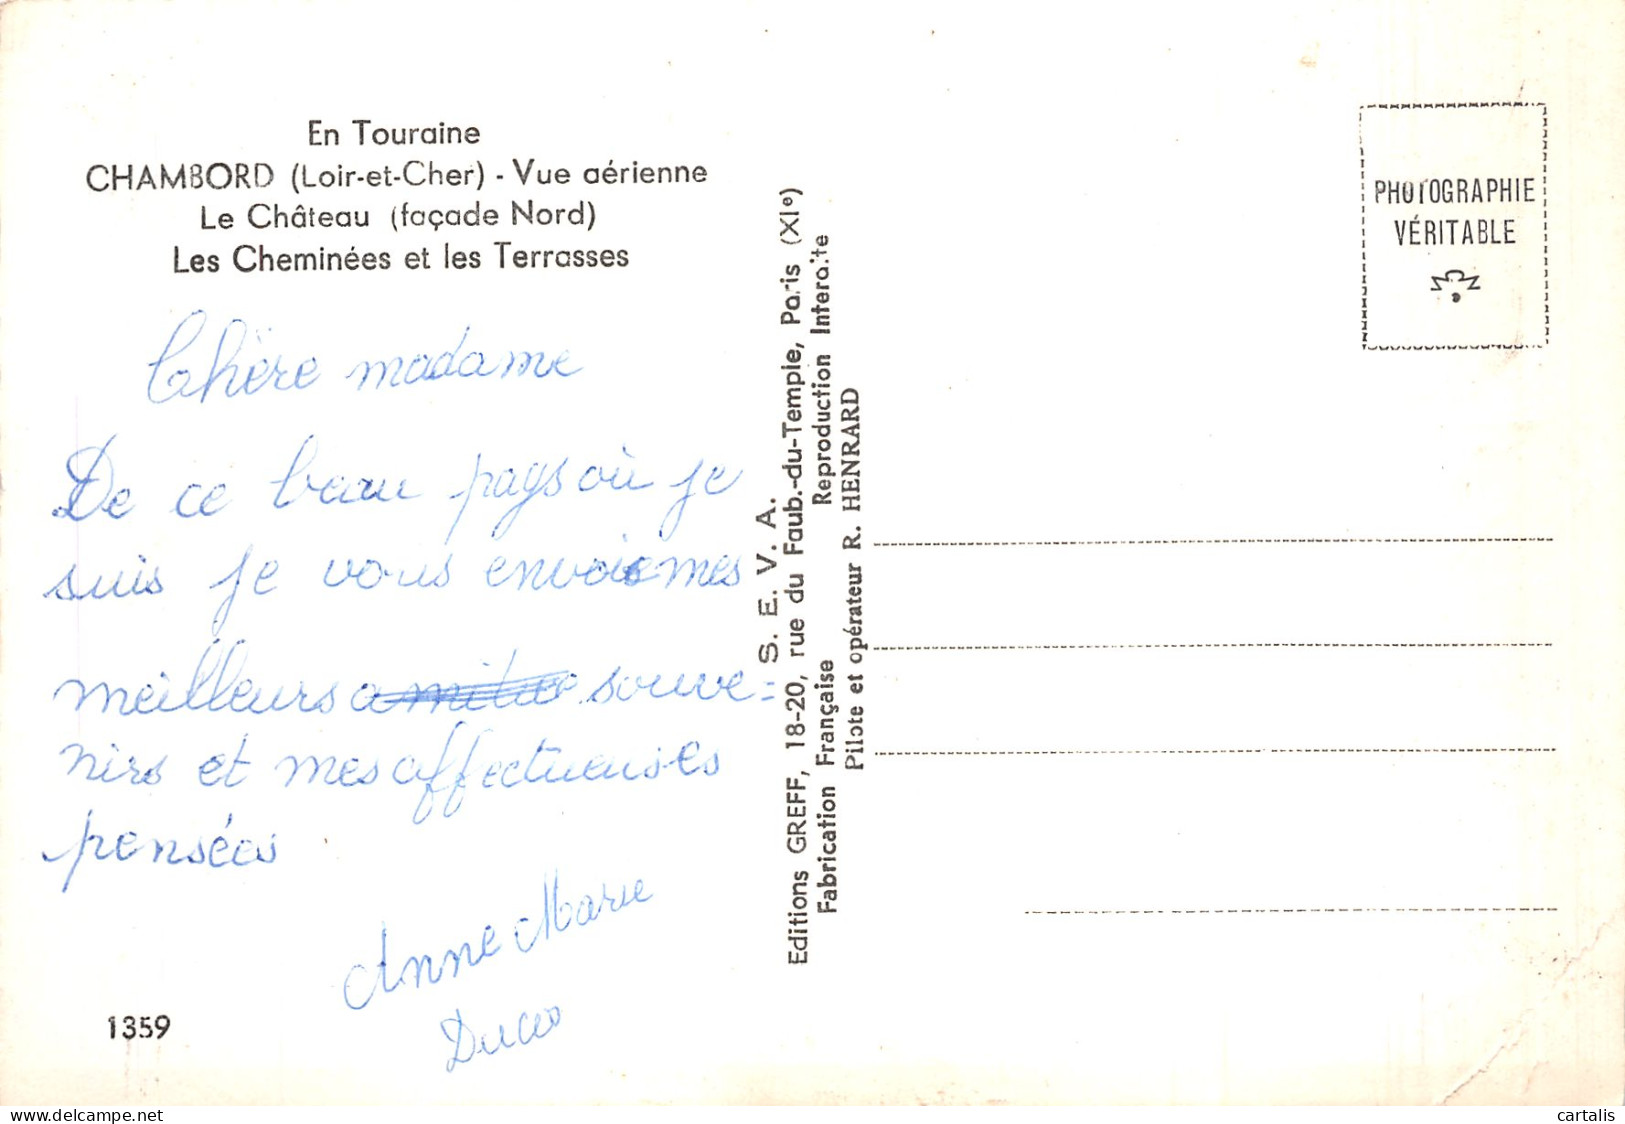 En Touraine
CHAMBORD (Loir-et-Cher) - Vue aérienne
Le Château (façade Nord)
Les Cheminées et les Terrasses
Chère madame
De ce beau pays où je
suis je vous envoie mes
meilleurs amitié souve=
nirs et mes affectueuses
pensées
Anne Marie
1359
S. E. V. A.
Editions GREFF, 18-20, rue du Faub.-du-Temple, Paris (XIe)
Fabrication Française Reproduction Interdite
Pilote et opérateur R. HENRARD
PHOTOGRAPHIE
VÉRITABLE
delcampe.net
cartalis